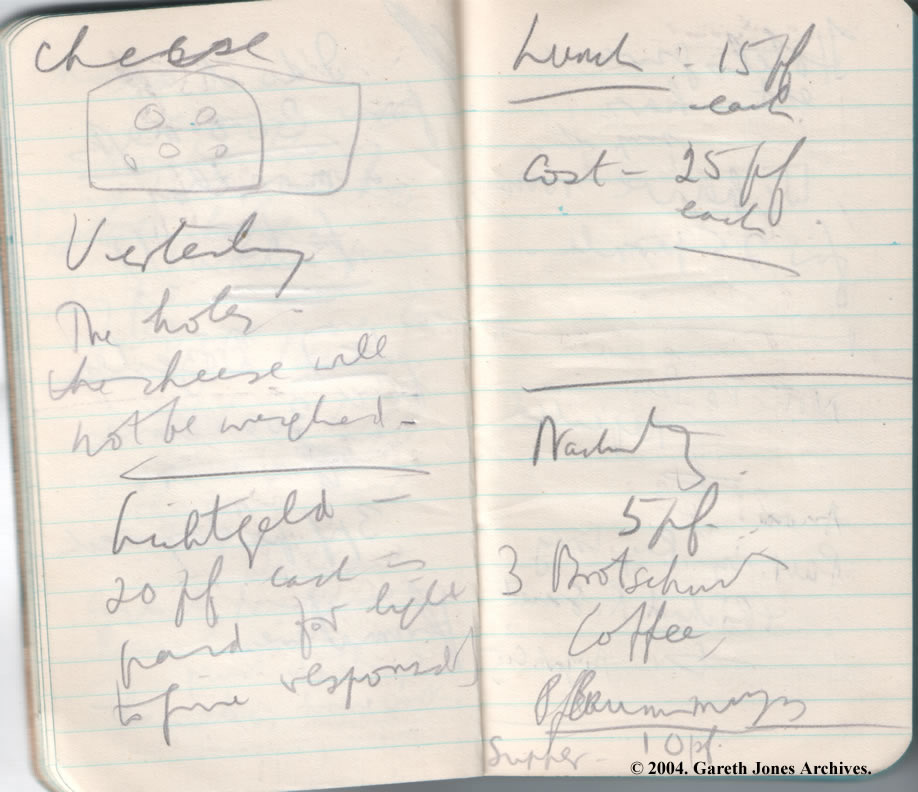 cheese
Yesterday
The holes -
the cheese will
not be weighed -
Lichtgeld -
20 pf each is
paid for light
to fine
Lunch : 15 pf
each
cost - 25 pf
each
5 pf.
3 Brotschnit
Coffee,
Supper - 10 pf.
© 2004. Gareth Jones Archives.